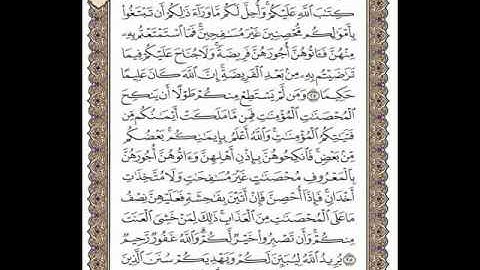 كِتَٰبَ ٱللَّهِ عَلَيْكُمْ وَأُحِلَّ لَكُم مَّا وَرَآءَ ذَٰلِكُمْ أَن تَبْتَغُوا۟
بِأَمْوَٰلِكُم مُّحْصِنِينَ غَيْرَ مُسَٰفِحِينَ فَمَا ٱسْتَمْتَعْتُم بِهِۦ
مِنْهُنَّ فَـَٔاتُوهُنَّ أُجُورَهُنَّ فَرِيضَةً وَلَا جُنَاحَ عَلَيْكُمْ فِيمَا
تَرَٰضَيْتُم بِهِۦ مِنۢ بَعْدِ ٱلْفَرِيضَةِ إِنَّ ٱللَّهَ كَانَ عَلِيمًا
حَكِيمًا ٢٤ وَمَن لَّمْ يَسْتَطِعْ مِنكُمْ طَوْلًا أَن يَنكِحَ
ٱلْمُحْصَنَٰتِ ٱلْمُؤْمِنَٰتِ فَمِن مَّا مَلَكَتْ أَيْمَٰنُكُم مِّن
فَتَيَٰتِكُمُ ٱلْمُؤْمِنَٰتِ وَٱللَّهُ أَعْلَمُ بِإِيمَٰنِكُم بَعْضُكُم
مِّنۢ بَعْضٍ فَٱنكِحُوهُنَّ بِإِذْنِ أَهْلِهِنَّ وَءَاتُوهُنَّ أُجُورَهُنَّ
بِٱلْمَعْرُوفِ مُحْصَنَٰتٍ غَيْرَ مُسَٰفِحَٰتٍ وَلَا مُتَّخِذَٰتِ
أَخْدَانٍ فَإِذَآ أُحْصِنَّ فَإِنْ أَتَيْنَ بِفَٰحِشَةٍ فَعَلَيْهِنَّ نِصْفُ
مَا عَلَى ٱلْمُحْصَنَٰتِ مِنَ ٱلْعَذَابِ ذَٰلِكَ لِمَنْ خَشِىَ ٱلْعَنَتَ
مِنكُمْ وَأَن تَصْبِرُوا۟ خَيْرٌ لَّكُمْ وَٱللَّهُ غَفُورٌ رَّحِيمٌ
٢٥ يُرِيدُ ٱللَّهُ لِيُبَيِّنَ لَكُمْ وَيَهْدِيَكُمْ سُنَنَ ٱلَّذِينَ